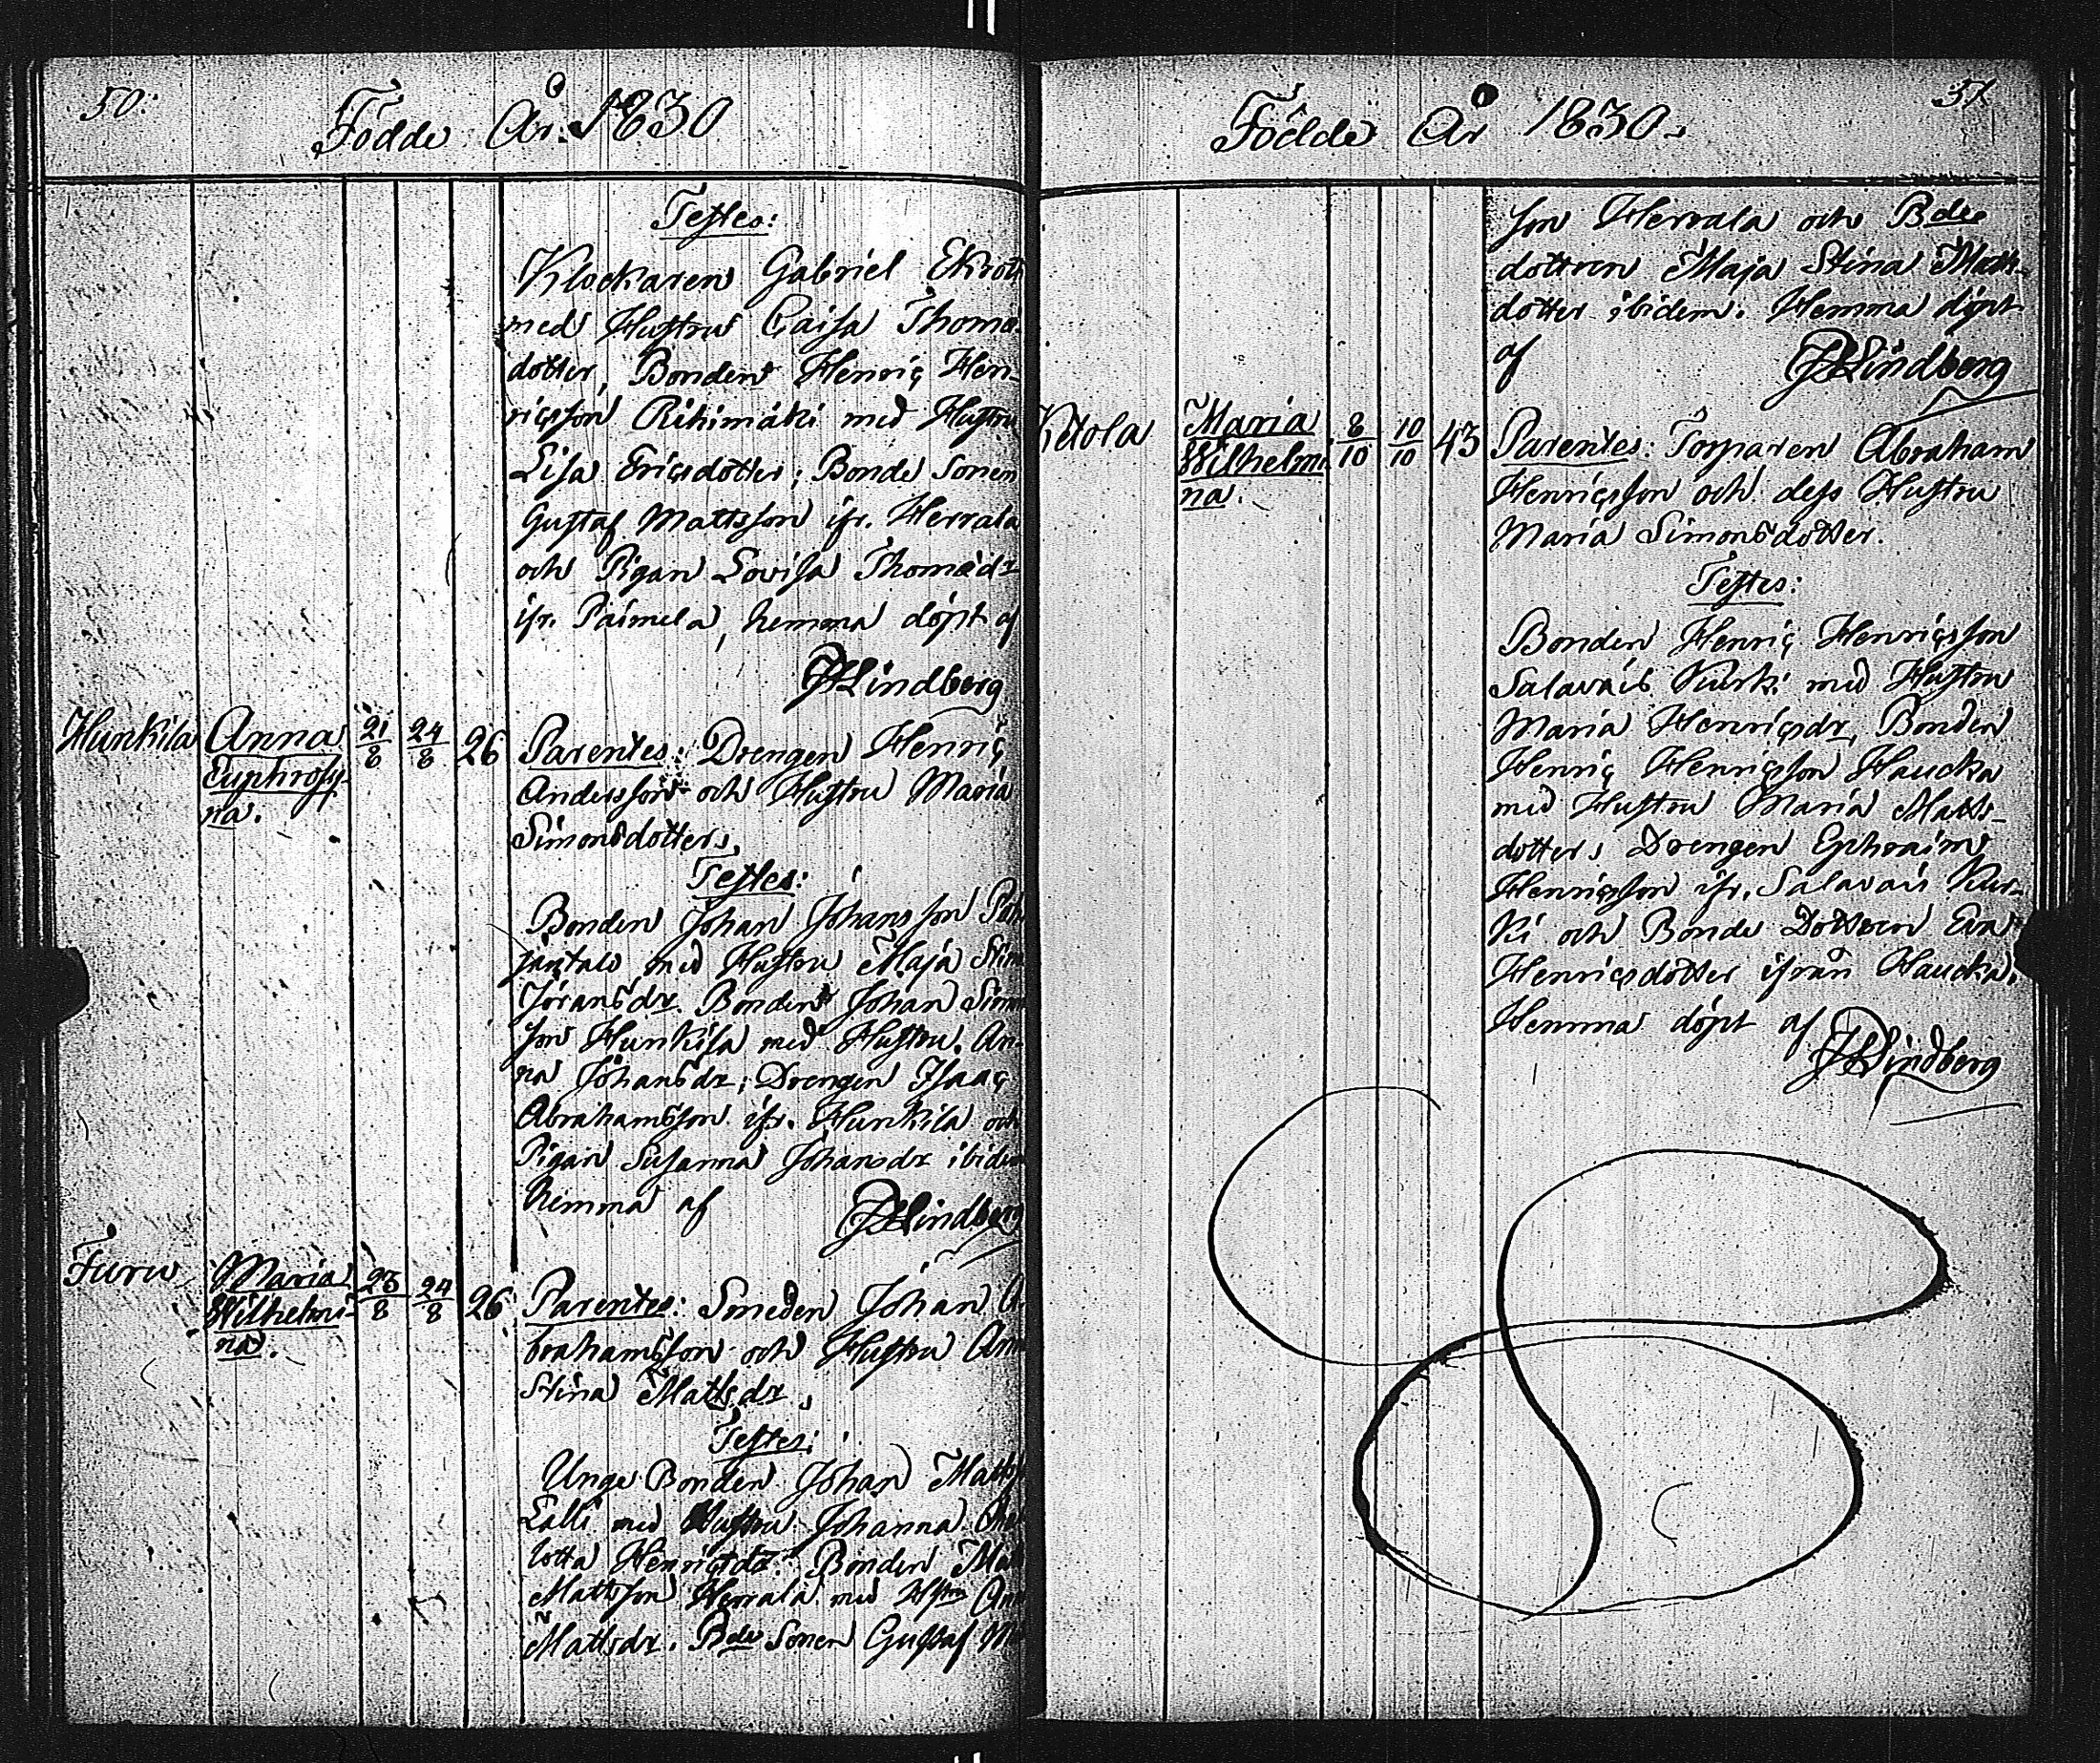 50.
Födde År. 1830
Testes:
Klockaren Gabriel Ekroth
med Hustru Caisa Thomæ
dotter, Bonden Henriç Hen-
riçsson Rihimäki med Hustru
Lisa Eriçsdotter; Bonde Sonen
Gustaf Mattsson ifr. Herrala
och Pigan Lovisa Thomædr
ifr. Paimela, hemma döpt af
JHLindberg
Hunkila Anna 21/8 24/8 26 Parentes: Drengen Henriç
Euphrosy- Andersson och Hustru Maria
na. Simonsdotter,
Testes:
Bonden Johan Johansson
med Hustru Maja Stina
Jöransdr. Bonden Johan Simon
son Hunkila med Hustru An-
na Johansdr; Drengen Isaaç
Abrahamsson ifr. Hunkila och
Pigan Susanna Johansdr ibidem
hemma af JHLindberg
Furu Maria 23/8 24/8 26 Parentes: Smeden Johan A
Wilhelmi- brahamsson och Hustru Anna
na. Stina Mattsdr,
Testes:
Unge Bonden Johan Mattss
Lalli med Hustru Johanna Char
lotta Henriçsdr. Bonden Matts
Mattsson Herrala med Hstru Anna
Mattsdr. Bde Sonen Gustaf M
51.
Födde År 1830.
son Herrala och Bde
dottren Maja Stina Matts-
dotter ibidem. Hemma döpt
af JHLindberg
Ketola Maria 8/10 10/10 43 Parentes: Torparen Abraham
Wilhelmi Henriçsson och dess Hustru
na. Maria Simonsdotter.
Testes:
Bonden Henriç Henriçsson
Salavais Kurki med Hustru
Maria Henriçsdr, Bonden
Henriç Henriçsson Haucka
med Hustru Maria Matts-
dotter, Drengen Ephraim
Henriçsson ifr. Salavais Kur-
ki och Bonde Dottren Eva
Henriçsdotter ifrån Haucka.
Hemma döpt af
JHLindberg